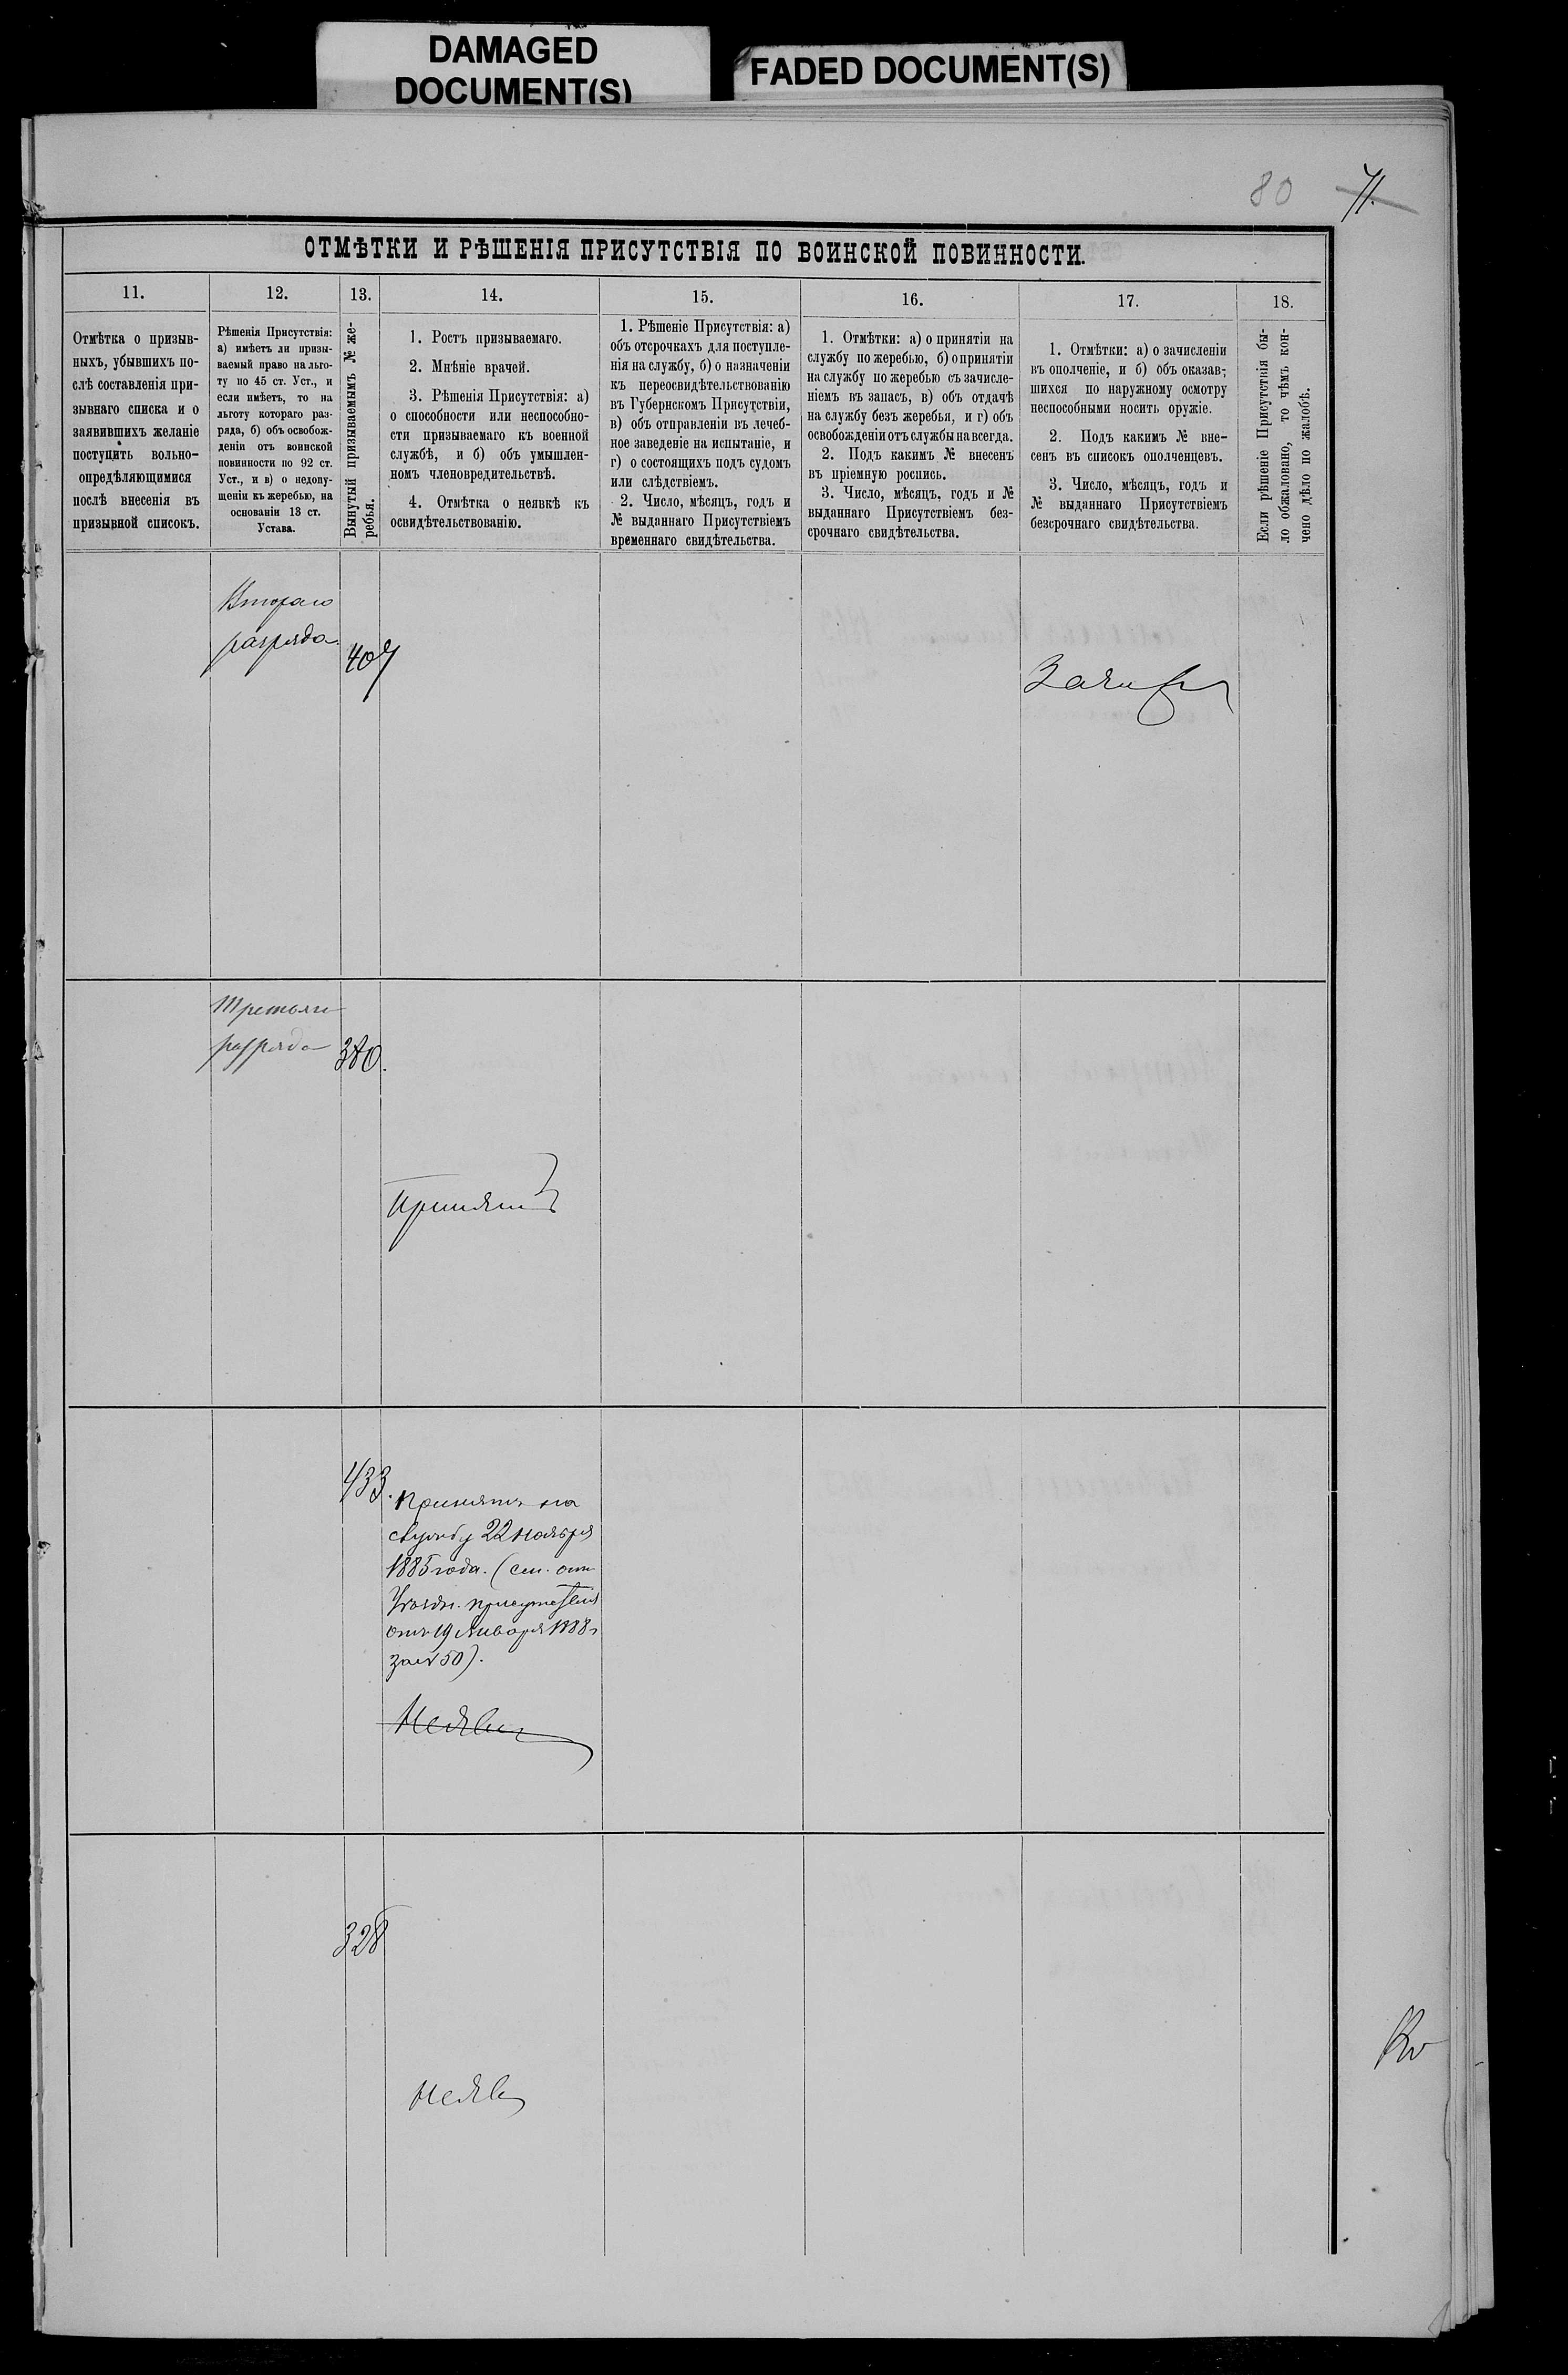 DAMAGED
DOCUMENT(S)
FADED DOCUMENT(S)
80
71.
ОТМѢТКИ И РѢШЕНІЯ ПРИСУТСТВІЯ ПО ВОИНСКОЙ ПОВИННОСТИ.
11.
Отмѣтка о призыв-
ныхъ, убывшихъ по-
слѣ составленія при-
зывнаго списка и о
заявившихъ желаніе
поступить вольно-
опредѣляющимися
послѣ внесенія въ
призывной списокъ.
12.
Рѣшенія Присутствія:
а) имѣетъ ли призы-
ваемый право на льго-
ту по 45 ст. Уст., и
если имѣетъ, то на
льготу котораго раз-
ряда, б) объ освобож-
деніи отъ воинской
повинности по 92 ст.
Уст., и в) о недопу-
щеніи къ жеребью, на
основаніи 13 ст.
Устава.
13.
Вынутый призываемымъ № же-
ребья.
14.
1. Ростъ призываемаго.
2. Мнѣніе врачей.
3. Рѣшенія Присутствія: а)
о способности или неспособно-
сти призываемаго къ военной
службѣ, и б) объ умышлен-
номъ членовредительствѣ.
4. Отмѣтка о неявкѣ къ
освидѣтельствованію.
15.
1. Рѣшеніе Присутствія: а)
объ отсрочкахъ для поступле-
нія на службу, б) о назначеніи
къ переосвидѣтельствованію
въ Губернскомъ Присутствіи,
в) объ отправленіи въ лечеб-
ное заведеніе на испытаніе, и
г) о состоящихъ подъ судомъ
или слѣдствіемъ.
2. Число, мѣсяцъ, годъ и
№ выданнаго Присутствіемъ
временнаго свидѣтельства.
16.
1. Отмѣтки: а) о принятіи на
службу по жеребью, б) о принятіи
на службу по жеребью съ зачисле-
ніемъ въ запасъ, в) объ отдачѣ
на службу безъ жеребья, и г) объ
освобожденіи отъ службы навсегда.
2. Подъ какимъ № внесенъ
въ пріемную роспись.
3. Число, мѣсяцъ, годъ и №
выданнаго Присутствіемъ без-
срочнаго свидѣтельства.
17.
1. Отмѣтки: а) о зачисленіи
въ ополченіе, и б) объ оказав-
шихся по наружному осмотру
неспособными носить оружіе.
2. Подъ какимъ № вне-
сенъ въ списокъ ополченцевъ.
3. Число, мѣсяцъ, годъ и
№ выданнаго Присутствіемъ
безсрочнаго свидѣтельства.
18.
Если рѣшеніе Присутствія бы-
ло обжаловано, то чѣмъ кон-
чено дѣло по жалобѣ.
Втораго
разряда
407
Третьяго
разряда
380.
Принятъ
433.
Принятъ на
службу 22 Ноября
1885 года. (сп. отн.
Уѣздн. присутствія
отъ 19 Января 1888 г
за № 50).
Неяв
328
Неяв